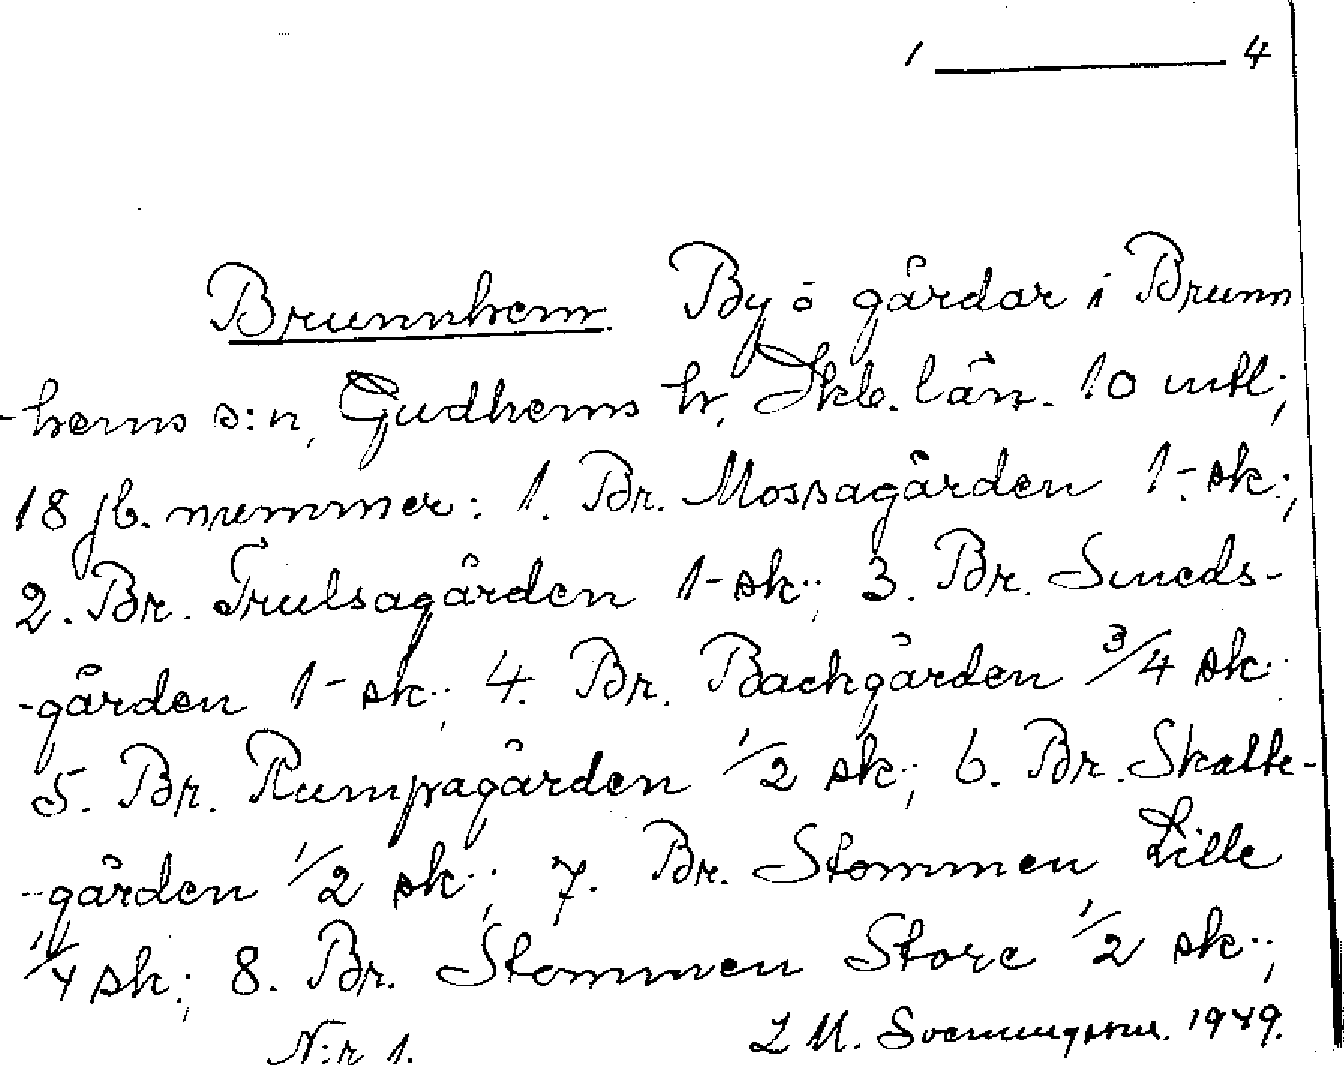 1 ———— 4
Brunnhem. By o gårdar i Brunn
-hems s:n, Gudhems hr, Skb. län. 10 mtl;
18 jb. nummer: 1. Br. Mossagården 1- sk.;
2. Br. Trulsagården 1- sk.; 3. Br. Smeds-
-gården 1- sk.; 4. Br. Backgården 3/4 sk.
5. Br. Rumpagården 1/2 sk.; 6. Br. Skatte-
-gården 1/2 sk.; 7. Br. Stommen Lille
1/4 sk.; 8. Br. Stommen Store 1/2 sk.;
N:r 1. L M. Svenungsson. 1949.